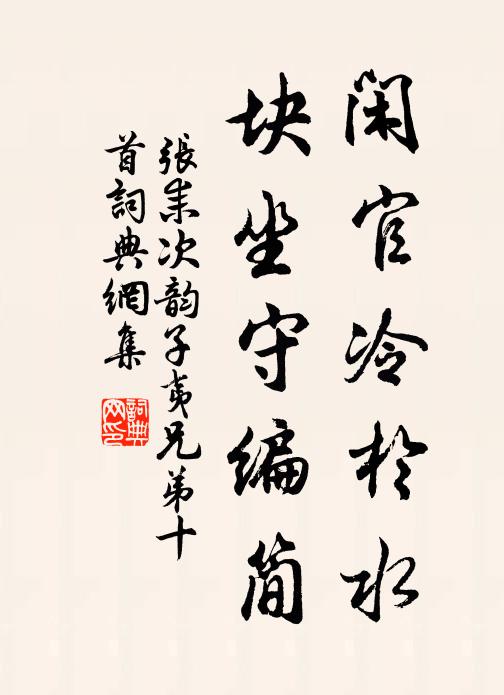 闲官冷於水
块坐守编简
張耒次韵子夷兄弟十
首詞典網集
詞典
网印